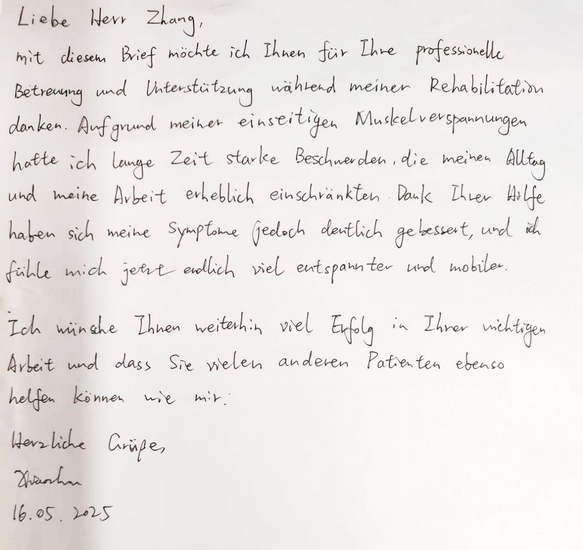 Liebe Herr Zhang,
mit diesem Brief möchte ich Ihnen für Ihre professionelle
Betreuung und Unterstützung während meiner Rehabilitation
danken. Aufgrund meiner einseitigen Muskelverspannungen
hatte ich lange Zeit starke Beschwerden, die meinen Alltag
und meine Arbeit erheblich einschränkten. Dank Ihrer Hilfe
haben sich meine Symptome jedoch deutlich gebessert, und ich
fühle mich jetzt endlich viel entspannter und mobiler.
Ich wünsche Ihnen weiterhin viel Erfolg in Ihrer wichtigen
Arbeit und dass Sie vielen anderen Patienten ebenso
helfen können wie mir.
Herzliche Grüße,
16.05.2025